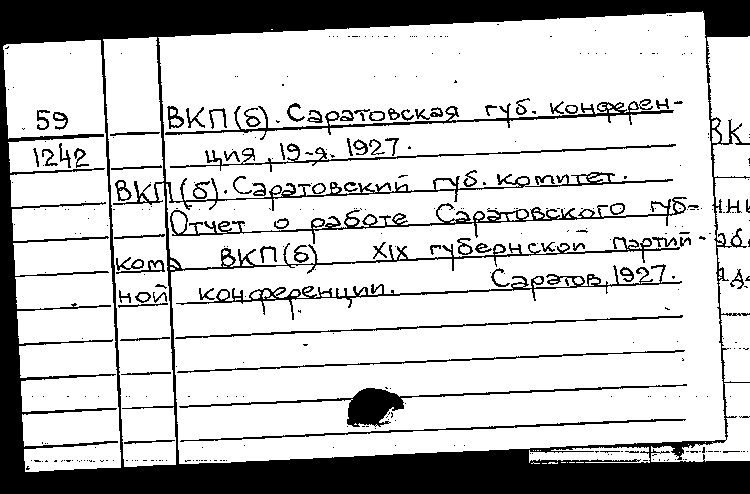 59 ВКП(б). Саратовская губ. конферен-
1242 ция, 19-я. 1927.
ВКП(б). Саратовский губ. комитет.
Отчет о работе Саратовского губ-
кома ВКП(б) XIX губернской партий-
ной конференции. Саратов, 1927.